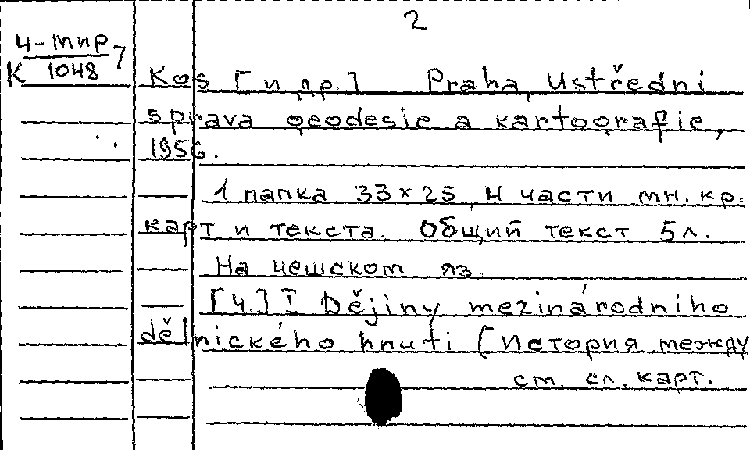 2
4-мир 7
К 1048
Kos [и др.] Praha, Ustředni
sprava geodesie a kartografie,
1956.
1 папка 33×25, 4 части мн. кр.
карт и текста. Общий текст 5л.
На чешском яз.
[Ч.] I Dějiny mezinárodniho
dělnického hnuti (История между
см. сл. карт.